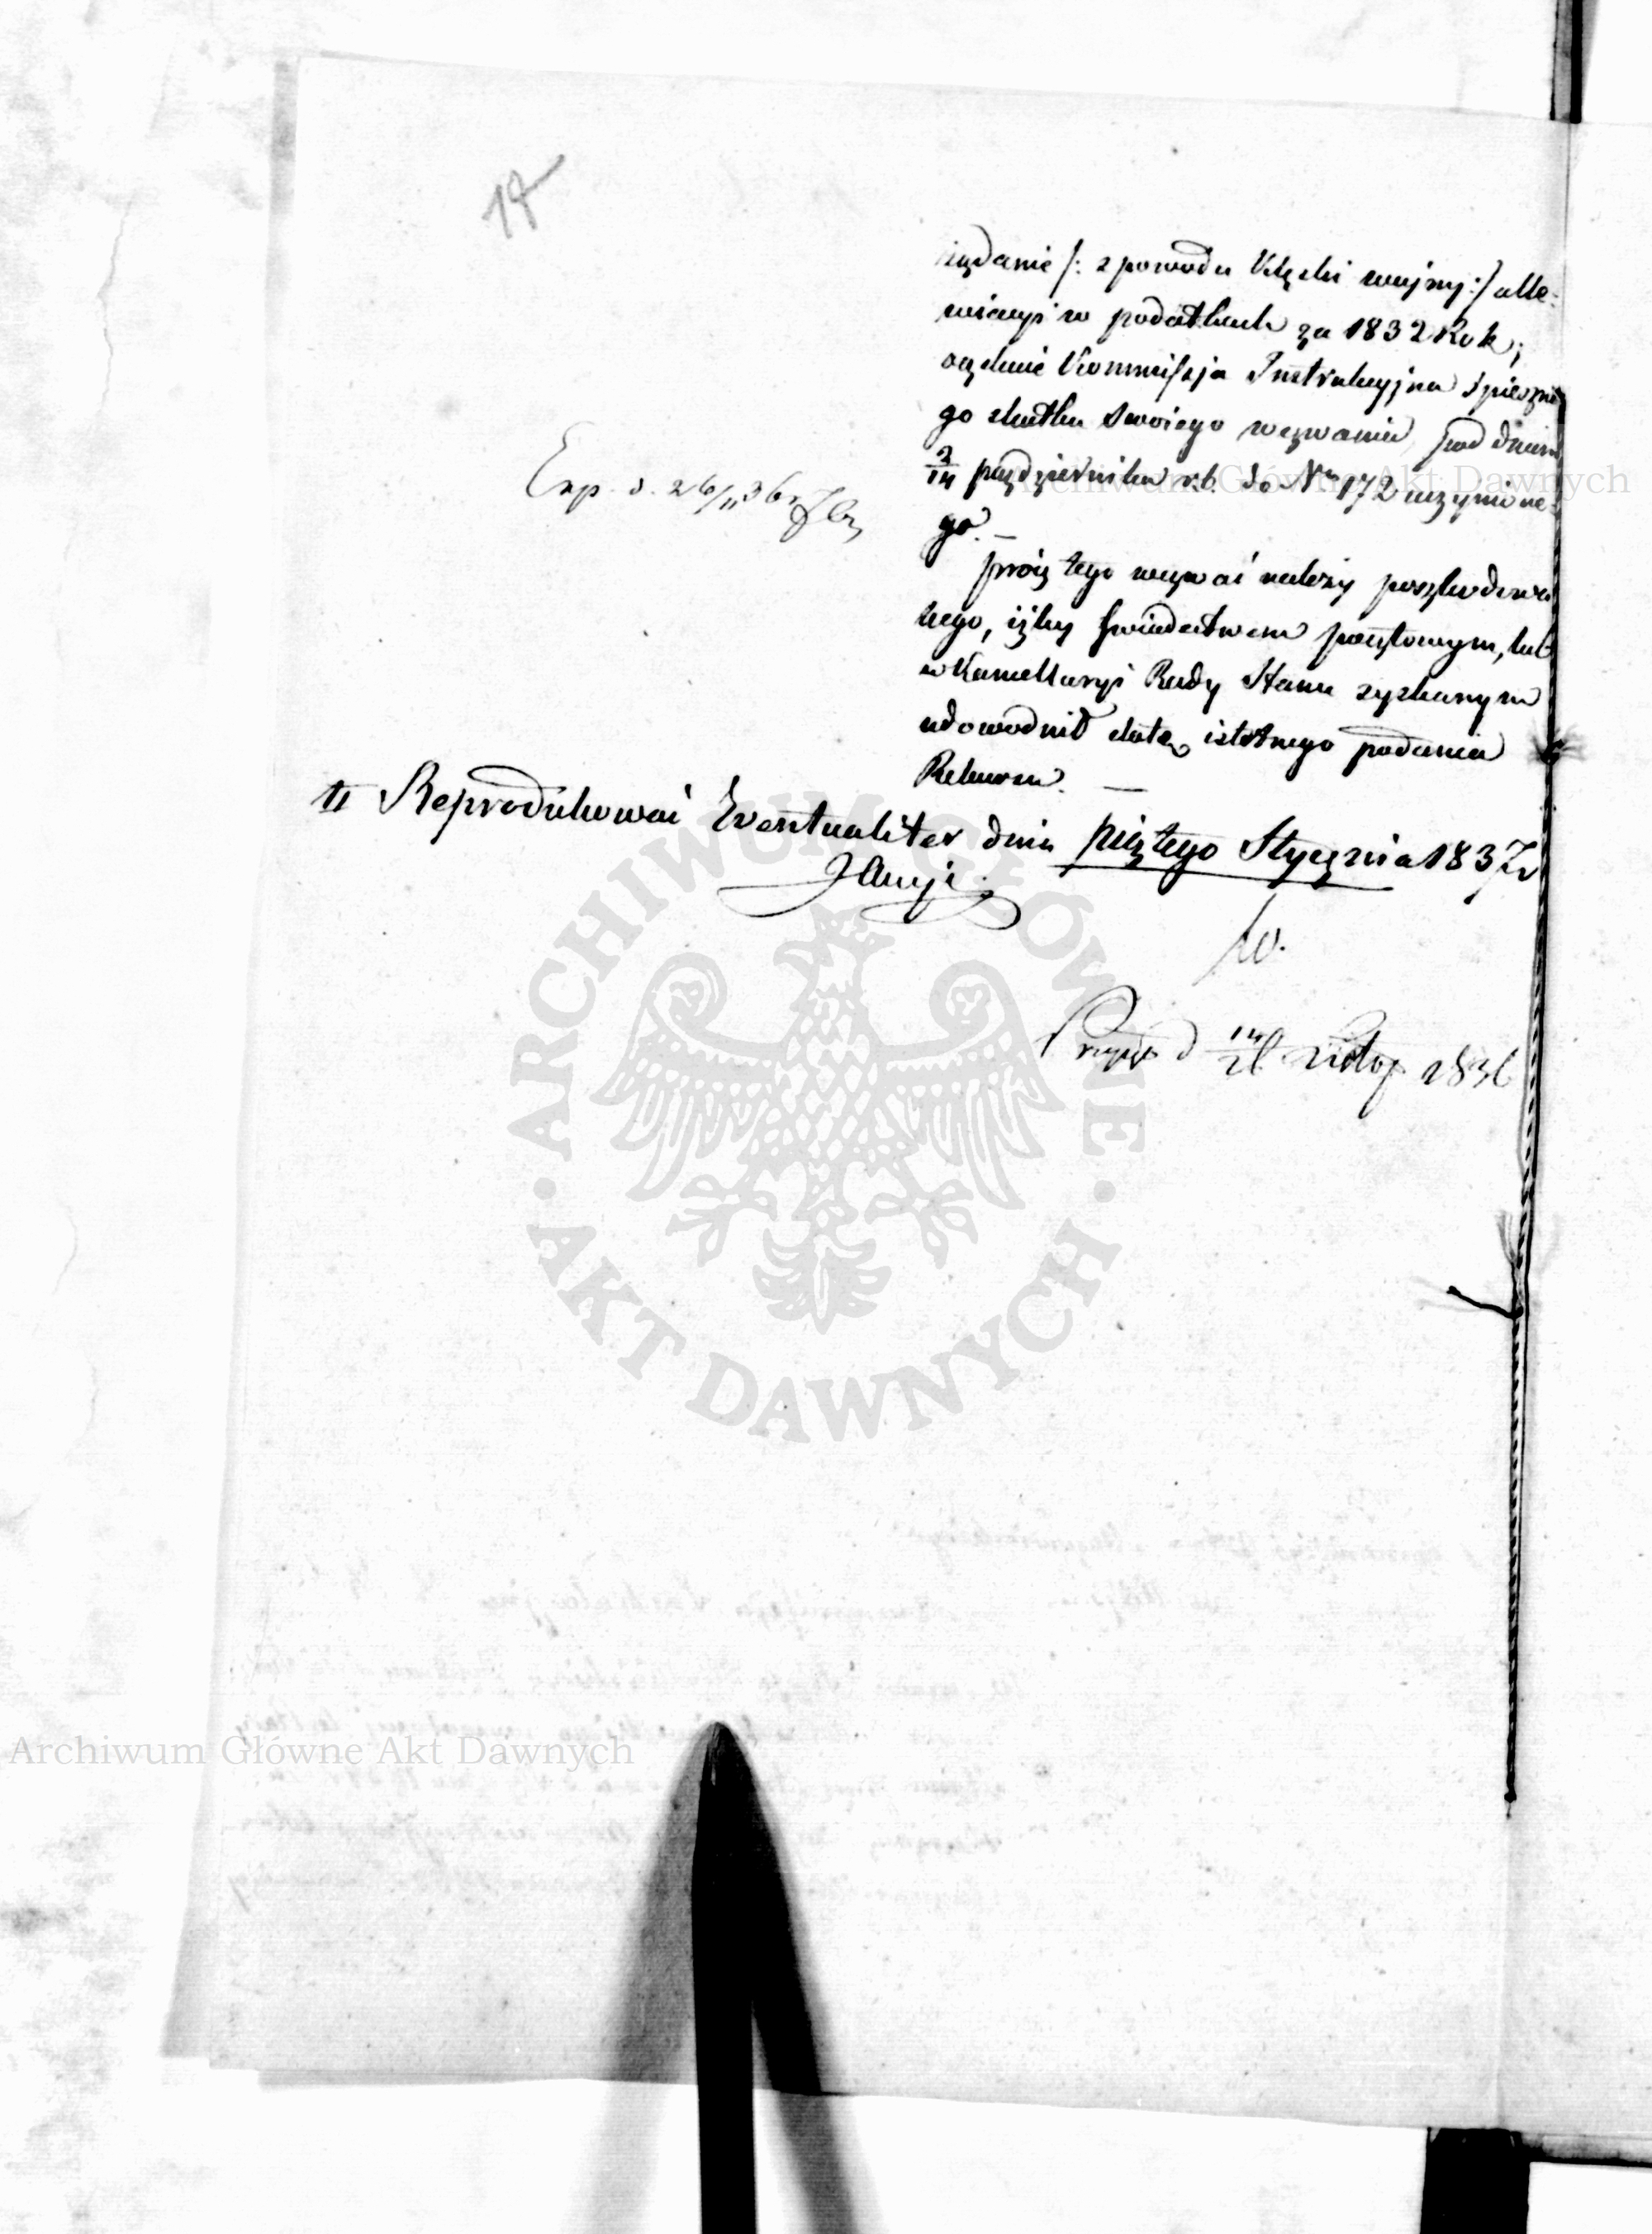 17
żądanie /: z powodu klęski wojny :/ alle=
wiacyi w podatkach za 1832 Rok;
oczekuie Kommissyja Instrukcyjna spieszne
go skutku swoiego wezwania pod dniem
2/14 października r.b. do Nru 172 uczynione=
go. —
Exp. d. 26/11 36 r
prócz tego wezwać należy poszkodowa
nego, iżby świadectwem pocztowym, lub
w Kancellaryi Rady Stanu zyskanym
udowodnił datę istotnego podania
Rekursu. —
II Reprodukować Eventualiter dnia piątego Stycznia 1837 r
Przyjęto d 14/26 Listop 1836
Archiwum Główne Akt Dawnych
ARCHIWUM GŁÓWNE · AKT DAWNYCH ·
Archiwum Główne Akt Dawnych